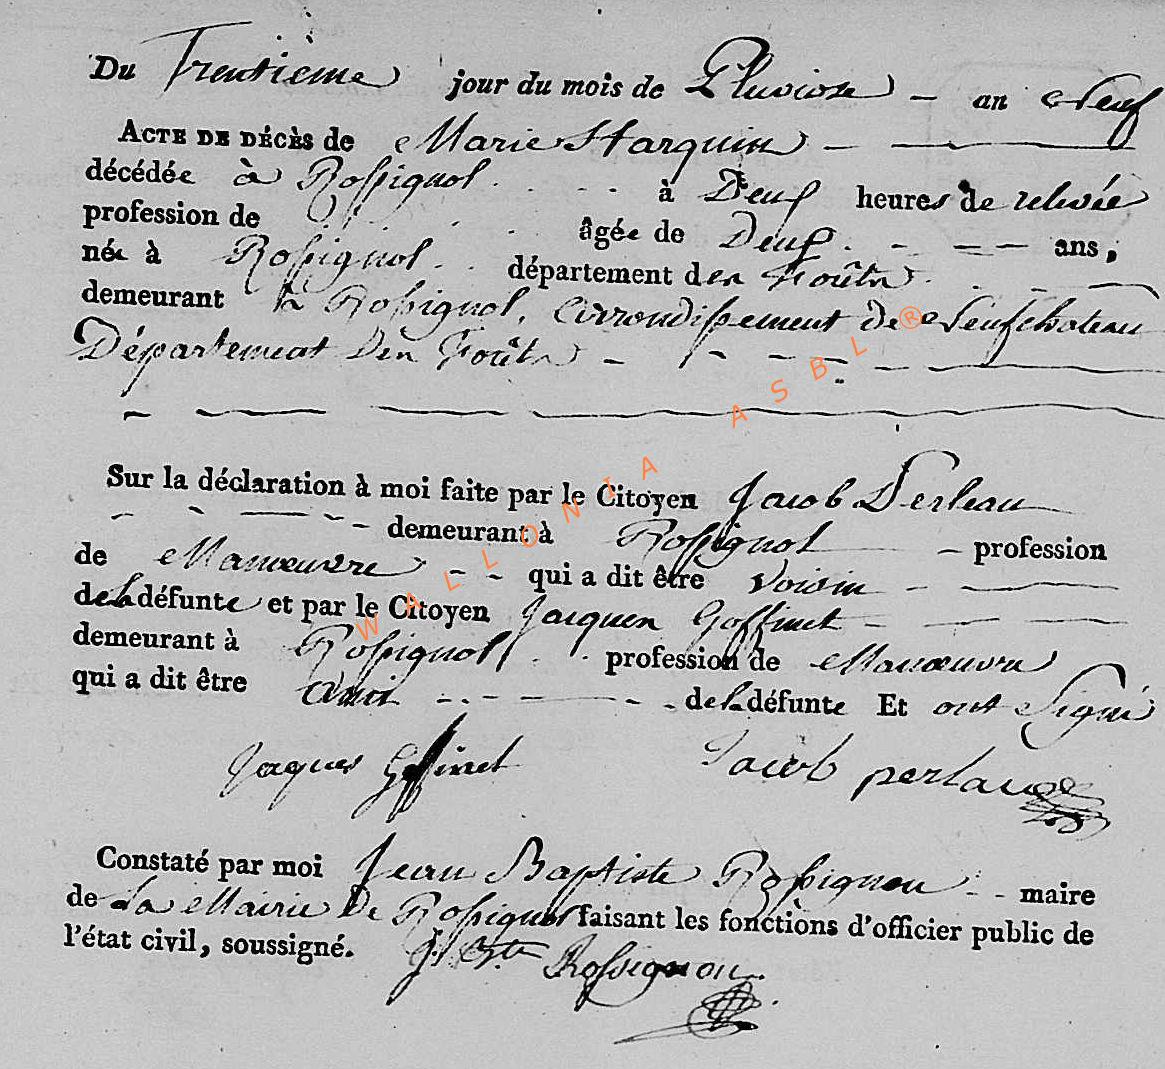 Du Trentieme jour du mois de Pluviose — an Neuf
ACTE DE DÉCÈS de Marie Starquin — —
décédée à Rossignol . . . . à Deux heures de relevée
profession de . . . . âgée de Deux . - — — ans,
née à Rossignol . . département des Forêts . . - —
demeurant à Rossignol, Arrondissement de Neufchateau
Département des Forêts - - - - -
Sur la déclaration à moi faite par le Citoyen Jacob Perleau
- - — — - - - demeurant à Rossignol — - profession
de Manœuvre - - qui a dit être Voisin - — —
de la défunte et par le Citoyen Jacques Goffinet - — — —
demeurant à Rossignol . . profession de Manœuvre
qui a dit être Ami - . - — - - - de la défunte Et ont Signé
Jaques Goffinet Jacob perlau
Constaté par moi Jean Baptiste Rossignon - - maire
de La Mairie De Rossignol faisant les fonctions d'officier public de
l'état civil, soussigné. J. Bte Rossignon.
WALLONIA ASBL ®